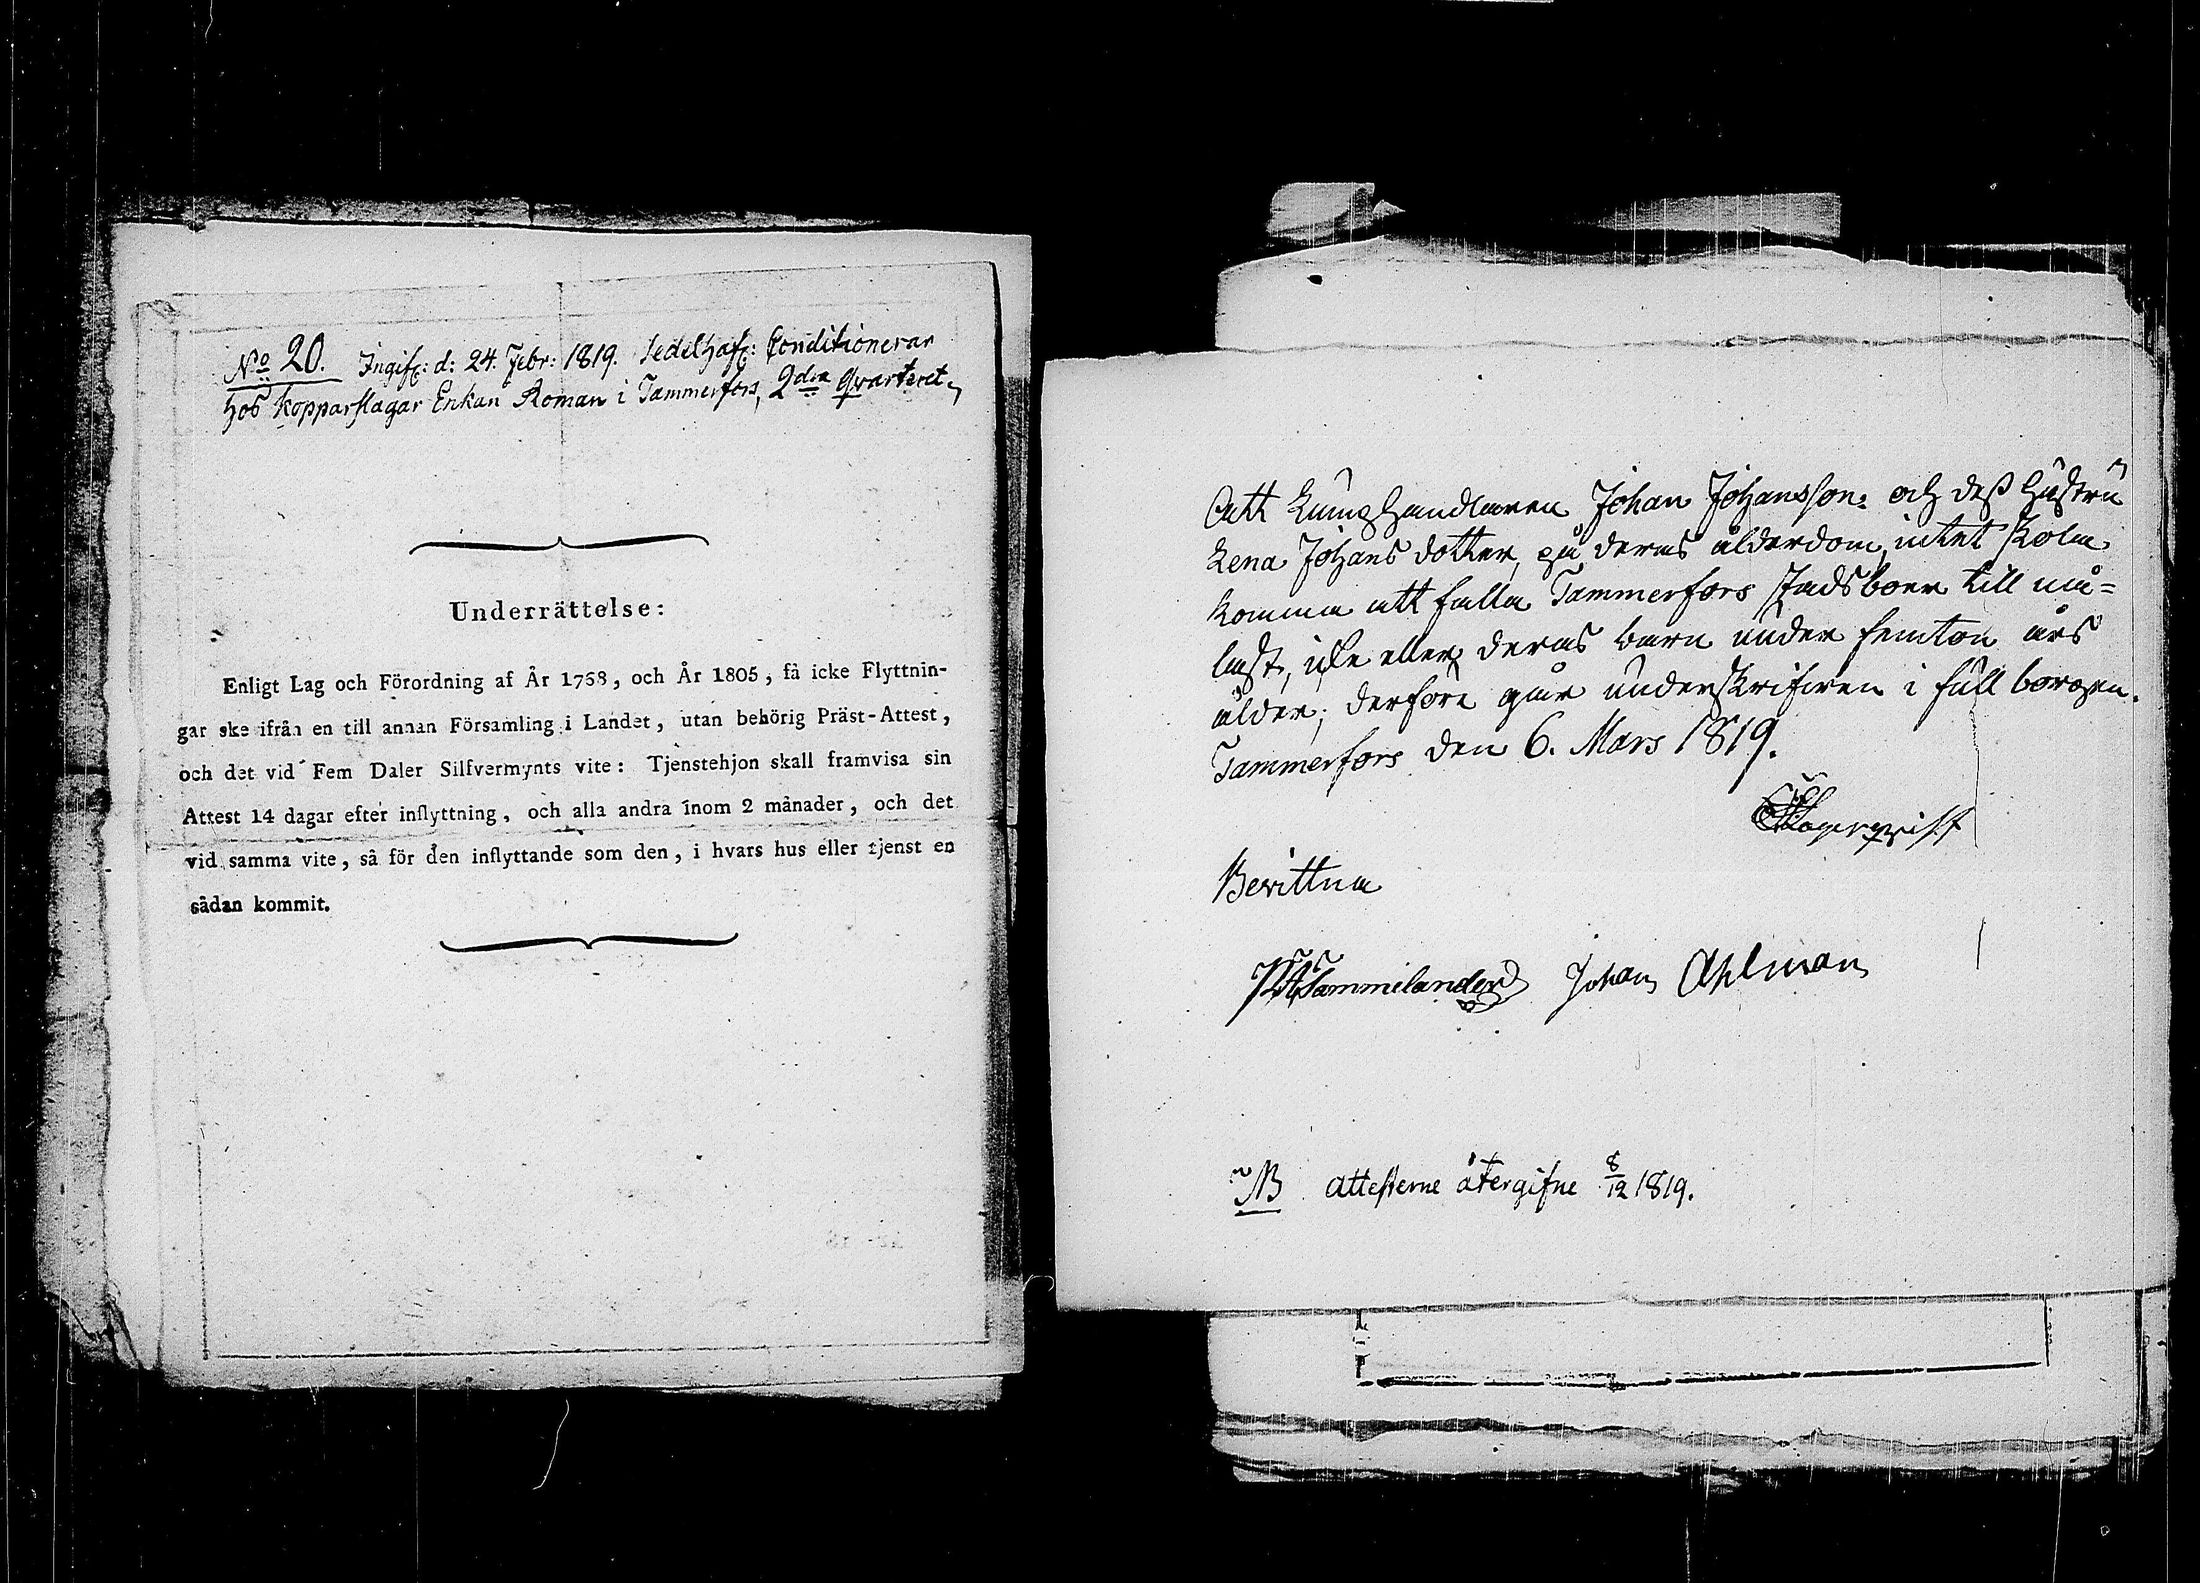 No 20. Ingifv: d: 24. Febr: 1819. Sedelhafv: Conditionerar
hos Kopparslagar Enkan Roman i Tammerfors, 2dra Qvarteret.
Underrättelse:
Enligt Lag och Förordning af År 1758, och År 1805, få icke Flyttnin-
gar ske ifrån en till annan Församling i Landet, utan behörig Präst-Attest,
och det vid Fem Daler Silfvermynts vite: Tjenstehjon skall framvisa sin
Attest 14 dagar efter inflyttning, och alla andra inom 2 månader, och det
vid samma vite, så för den inflyttande som den, i hvars hus eller tjenst en
sådan kommit.
Att Johan Johansson och dess hustru
Lena Johans dotter, på deras ålderdom, intet skola
komma att falla Tammerfors stadsboer till nå-
last, icke eller deras barn under femton års
ålder; derföre går underskrifvven i full borgen.
Tammerfors den 6. Mars 1819.
Lagerqvist
Bevittna
Sammelander Johan Ahlman
NB attesterne återgifne 8/12 1819.